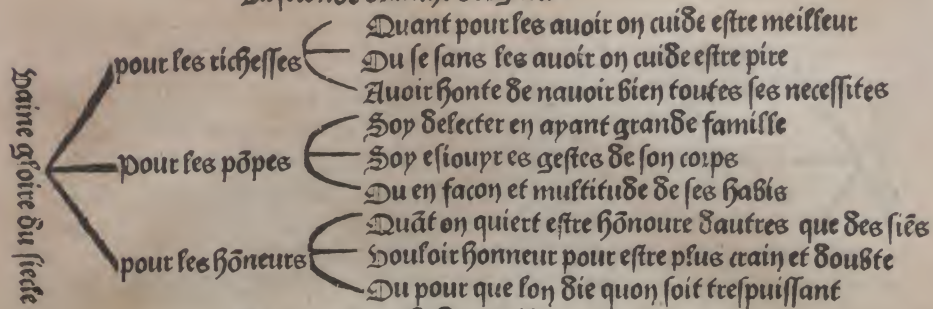 Vaine gloire du siecle
pour les richesses
Quant pour les auoir on cuide estre meilleur
Ou se sans les auoir on cuide estre pire
Auoir honte de nauoir bien toutes ses necessites
Pour les põpes
Soy delecter en ayant grande famille
Soy esiouyr es gestes de son corps
Ou en facon et multitude de ses habis
pour les hõneurs
Quãt on quiert estre hõnoure dautres que des siẽs
Vouloir honneur pour estre plus craint et doubte
Ou pour que lon die quon soit trespuissant